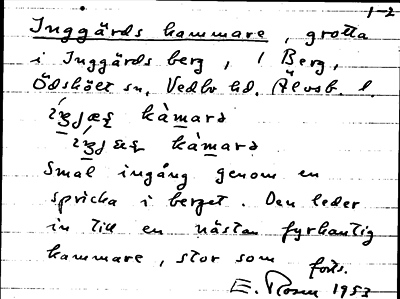 1-2
Inggärds kammare, grotta
i Inggärds berg, 1 Berg,
Ödskölt sn. Vedbo hd. Älvsb. l.
kàmarə
kàmarə
Smal ingång genom en
spricka i berget. Den leder
in till en nästan fyrkantig
kammare, stor som
forts.
E. Rosén 1953